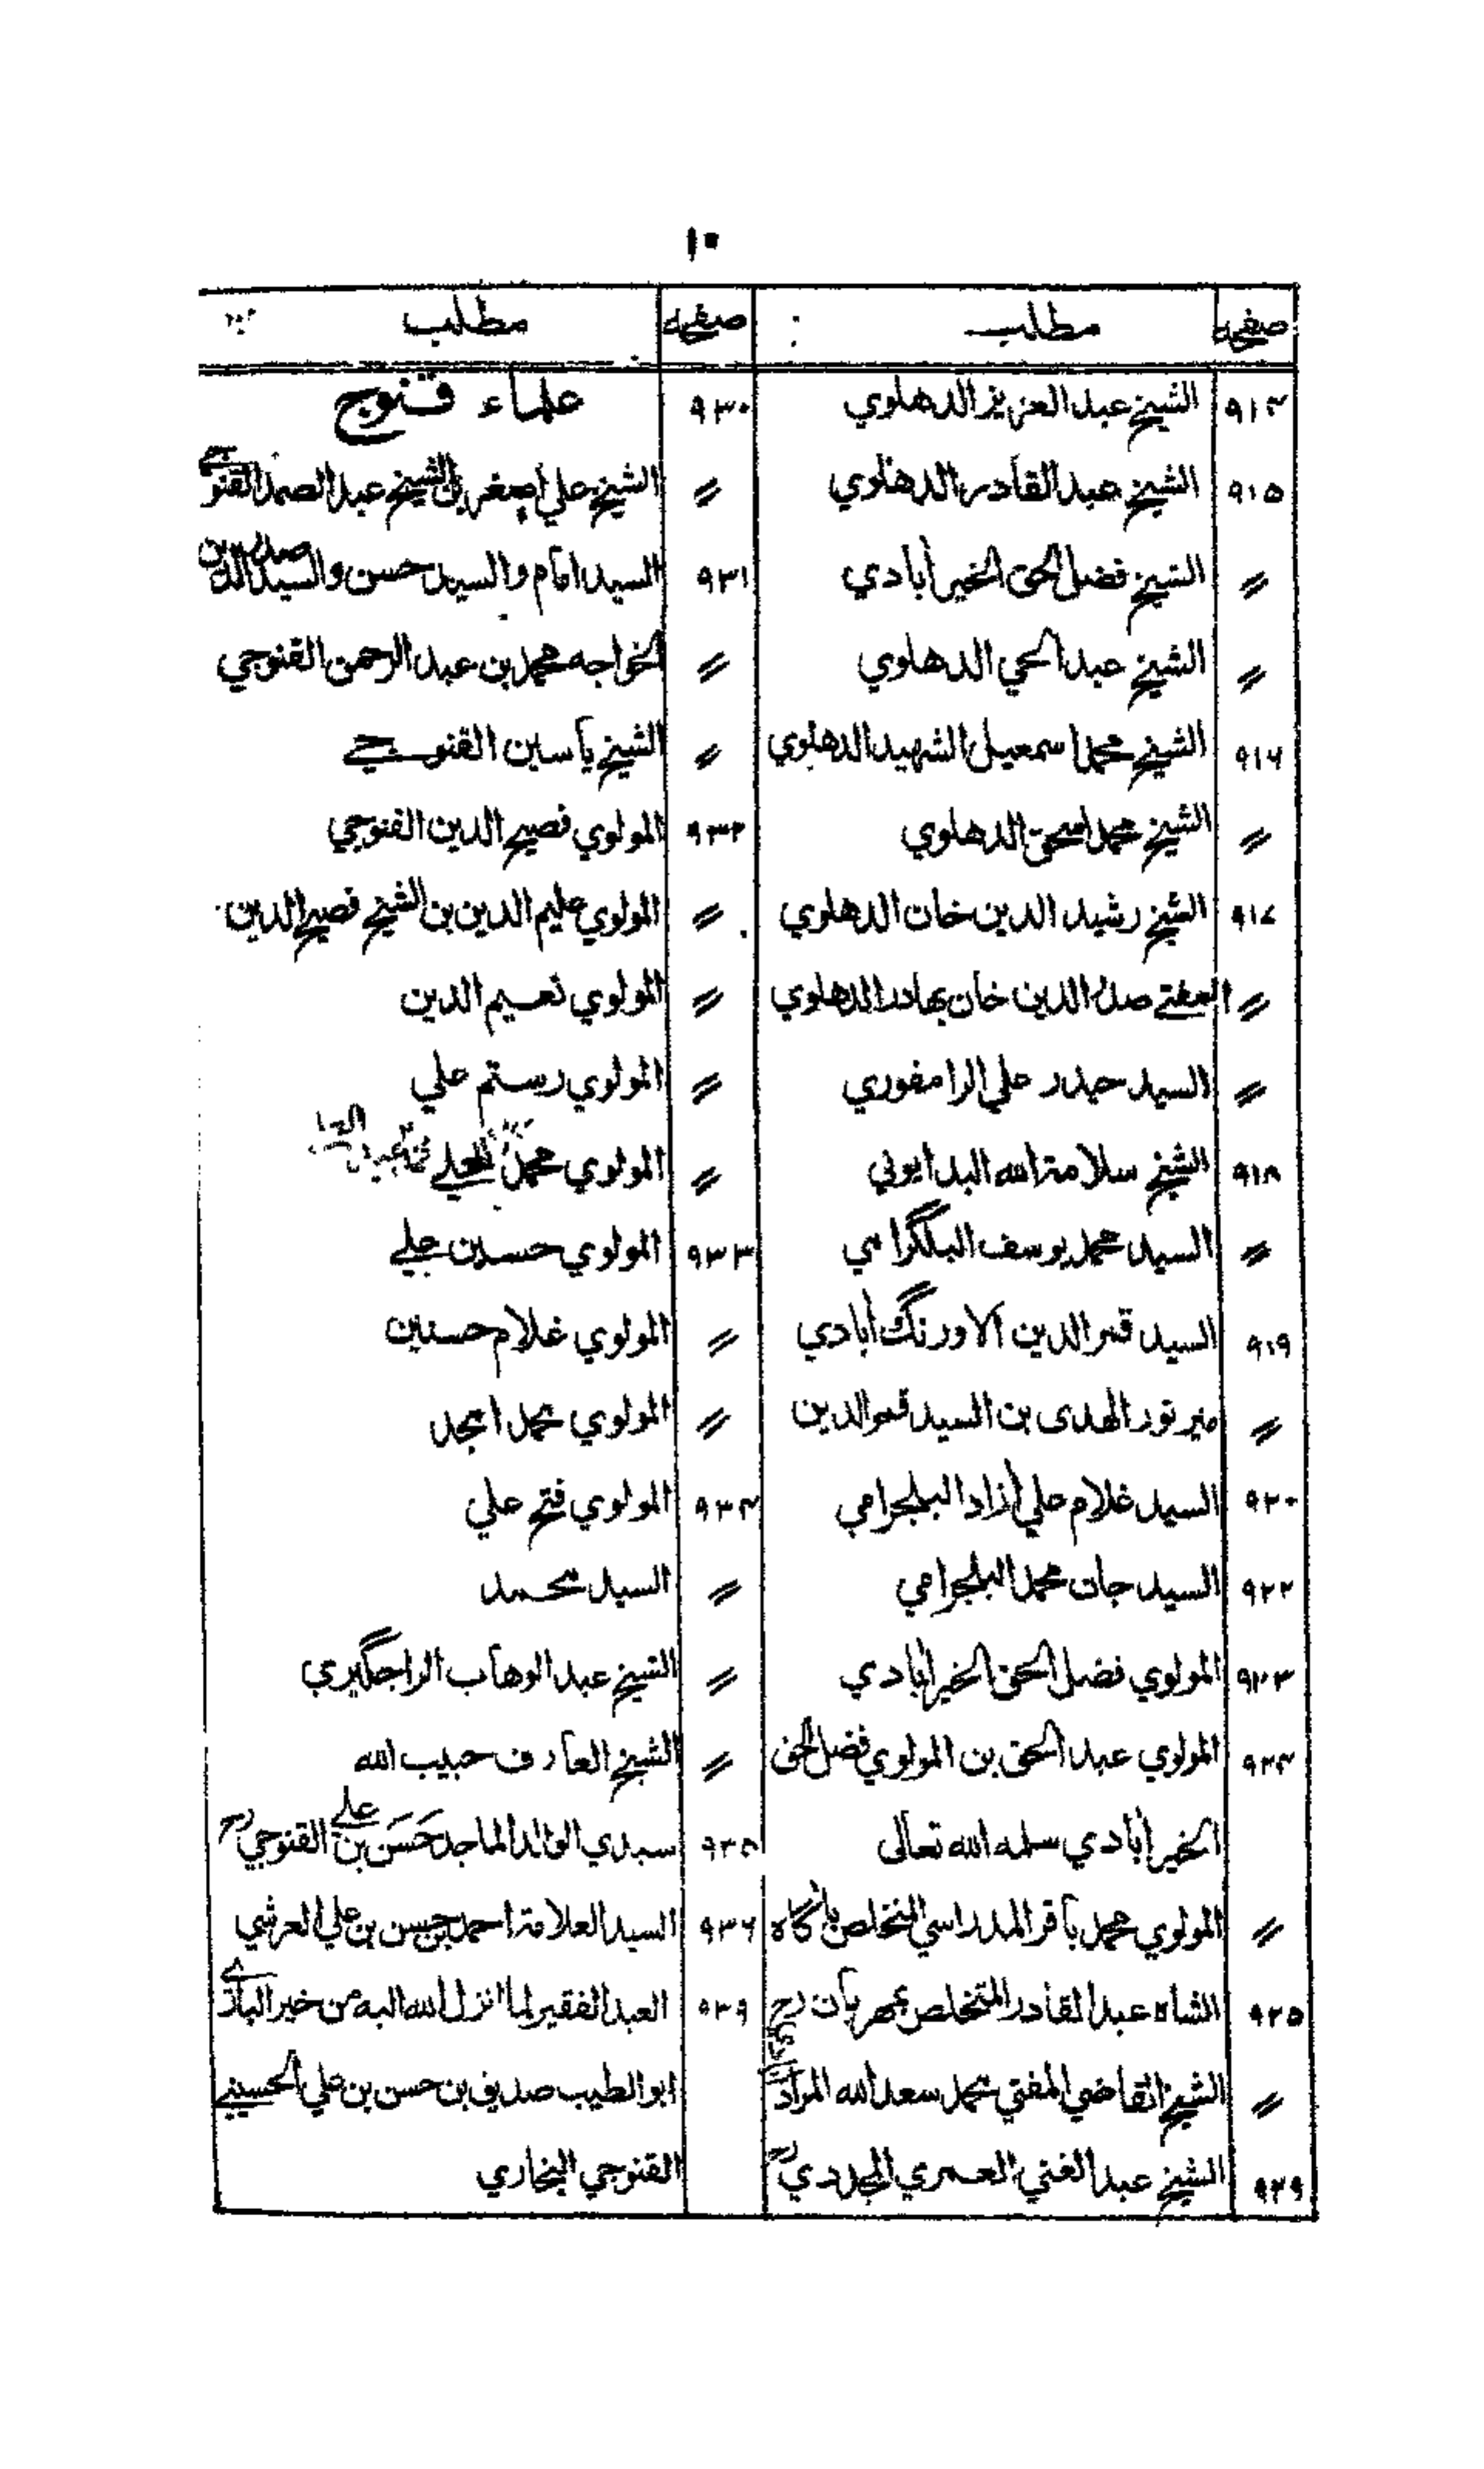 ١٠
صفحه مطلب صفحه مطلب
٩١٤ الشيخ عبد العزيز الدهلوي
٩١٥ الشيخ عبد القادر الدهلوي
〃 الشيخ فضل الحق الخيرأبادي
〃 الشيخ عبد الحي الدهلوي
٩١٦ الشيخ محمد اسمعيل الشهيد الدهلوي
〃 الشيخ محمد اسحق الدهلوي
٩١٧ الشيخ رشيد الدين خان الدهلوي
〃 المفتي صدر الدين خان بهادر الدهلوي
〃 السيد حيدر علي الرامفوري
٩١٨ الشيخ سلامة الله البدايوني
〃 السيد محمد يوسف البلگرامي
٩١٩ السيد قمر الدين الاورنگ أبادي
〃 مير نور الهدى بن السيد قمر الدين
٩٢٠ السيد غلام علي أزاد البلجرامي
٩٢٢ السيد جان محمد البلجرامي
٩٢٣ المولوي فضل الحق الخيرأبادي
٩٢٤ المولوي عبد الحق بن المولوي فضل الحق
الخيرأبادي سلمه الله تعالى
〃 المولوي محمد باقر المدراسي المتخلص بأگاه
٩٢٥ الشاه عبد القادر المتخلص بمهربان رح
〃 الشيخ القاضي المفتي محمد سعد الله المرادآبادي
٩٢٩ الشيخ عبد الغني العمري المجددي رح
٩٣٠ علماء قنوج
〃 الشيخ علي أصغر بن الشيخ عبد الصمد القنوجي
٩٣١ السيد امام والسيد حسن والسيد صدر الدين
〃 الخواجه محمد بن عبد الرحمن القنوجي
〃 الشيخ ياسين القنوجي
٩٣٢ المولوي فصيح الدين القنوجي
〃 المولوي عليم الدين بن الشيخ فصيح الدين
〃 المولوي نعيم الدين
〃 المولوي رستم علي
〃 المولوي محمد
٩٣٣ المولوي حسين علي
〃 المولوي غلام حسنين
〃 المولوي محمد امجد
٩٣٤ المولوي فتح علي
〃 السيد محمد
〃 الشيخ عبد الوهاب الراجگيري
〃 الشيخ العارف حبيب الله
٩٣٥ سيدي الوالد الماجد حَسَن بن علي القنوجي رح
٩٣٦ السيد العلامة احمد بن حسن بن علي العرشي
٩٣٩ العبد الفقير لما انزل الله اليه من خير البادي
ابو الطيب صديق بن حسن بن علي الحسيني
القنوجي البخاري